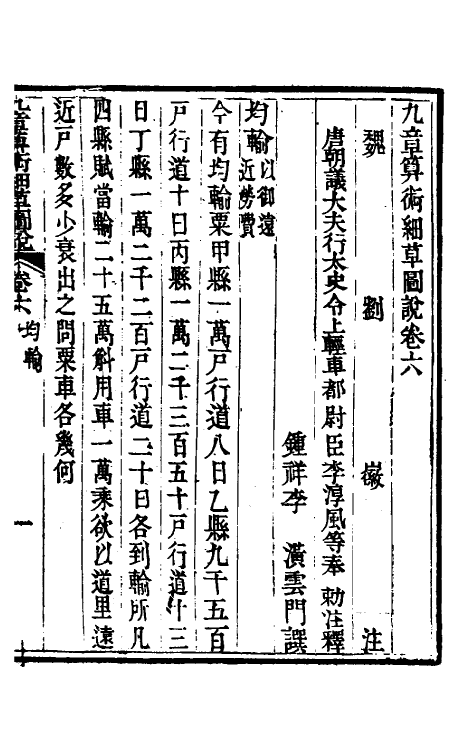 九章算術細草圖說卷六
魏 劉 徽 注
唐朝議大夫行太史令上輕車都尉臣李淳風等奉 勅注釋
鍾祥李 潢雲門譔
均輸以御遠近勞費
今有均輸粟甲縣一萬戶行道八日乙縣九千五百
戶行道十日丙縣一萬二千三百五十戶行道十三
日丁縣一萬二千二百戶行道二十日各到輸所凡
四縣賦當輸二十五萬斛用車一萬乘欲以道里遠
近戶數多少衰出之問粟車各幾何
九章算術細草圖說 卷六 均輸 一